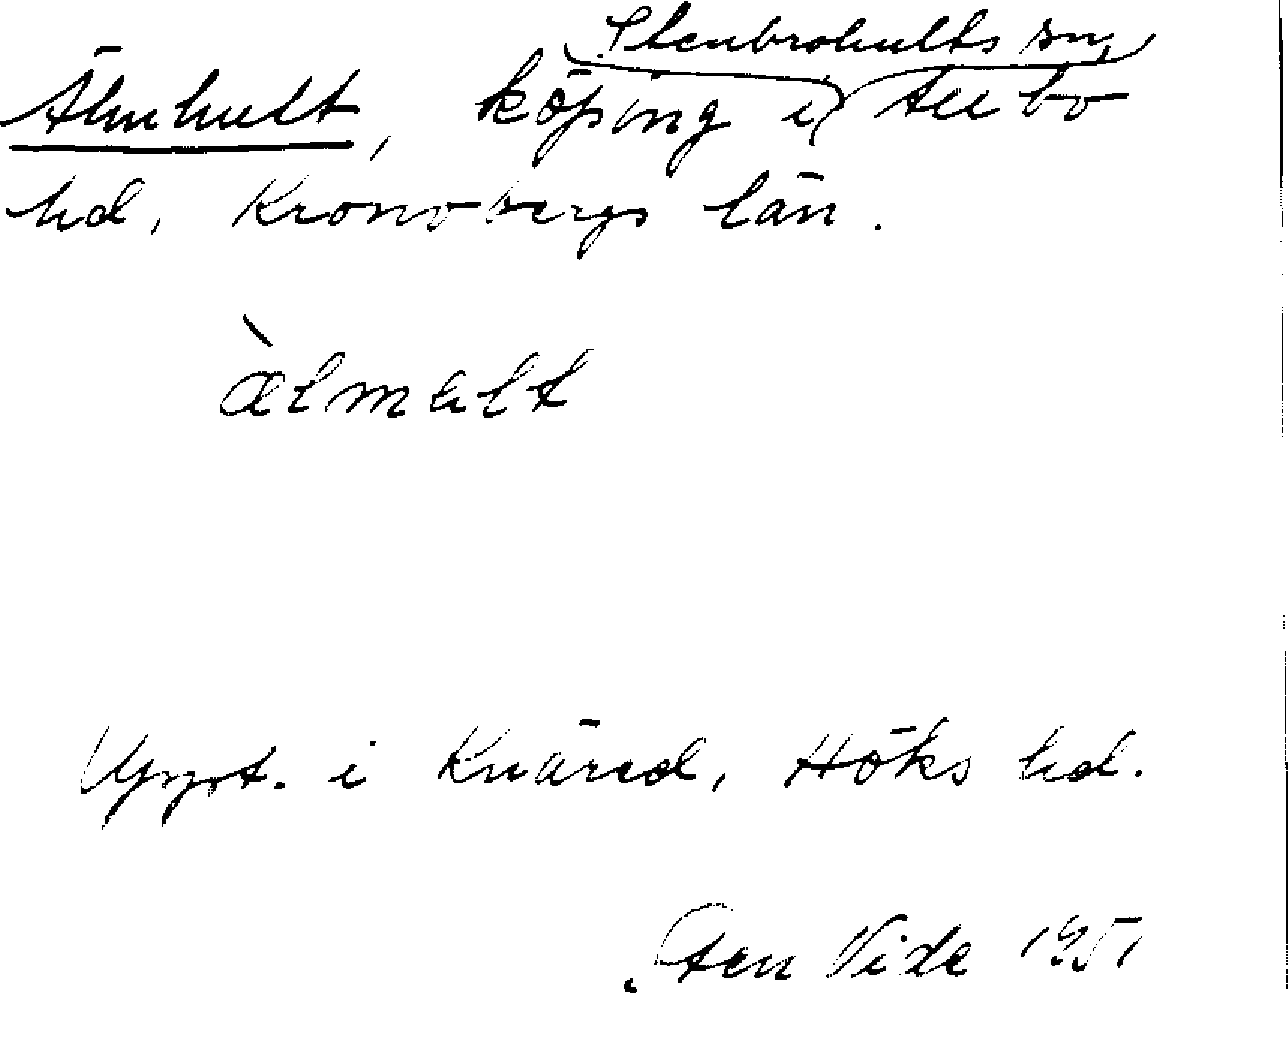 Stenbrohults sn,
Älmhult, köping i Allbo
hd, Kronobergs län.
ælmalt
Uppt. i Knäred, Höks hd.
Sten Vide 1951